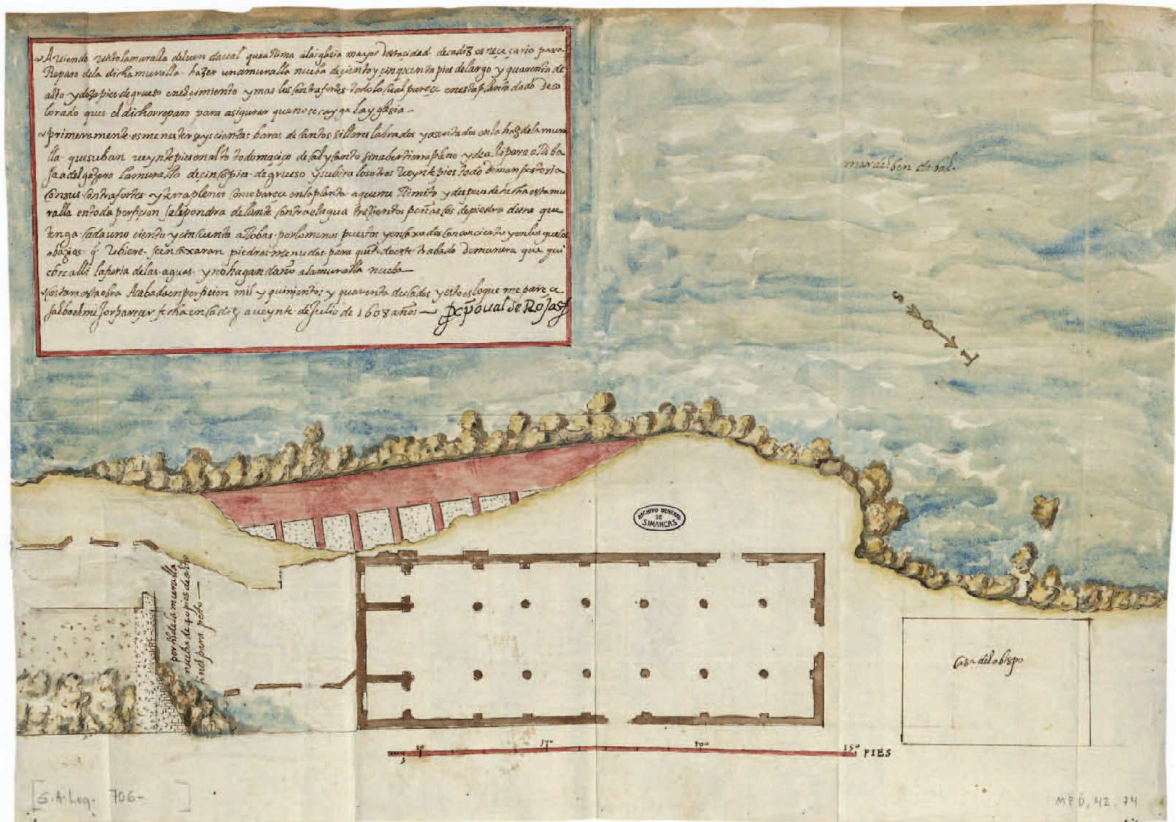 Aviendo visto la muralla del vendaval que arrima a la iglesia mayor desta ciudad de cadiz es neceçario para
Reparo de la dicha muralla hazer una muralla nueba de ciento y cinquenta pies de largo y quarenta de
alto y doze pies de grueso en el cimiento y mas los contrafortes todo lo qual pareçe en esta planta dado de co
lorado que es el dicho reparo para asigurar que no se cayga la yglesia
primeramente es menester seyscientas baras de cantos sillares labrados y asentados en la haz de la mura
lla que suban veynte pies en alto todo maciço de cal y canto sin aber tierrapleno y de alli para arriba
la muralla de cinco pies de grueso y subira los otros veynte pies todo de manposteria
con sus contrafortes y terraplenes como pareçe en la planta a que me Remito y despues de hecha esta mu
ralla en toda perfiçion se le pondra delante contra el agua trescientos peñascos de piedra dura que
tenga cada uno ciento y cincuenta arrobas por lo menos puestos y enlaxados con conçierto y en los guecos
abajos q ubiere se encaxaran piedras menudas para que quede fuerte trabado de manera que qui
ebre alli la furia de las aguas y no hagan daño a la muralla nueba
Costara esta obra Acabada en perficion mil y quinientos y quarenta ducados y esto es lo que me pareçe
salbo el mejor pareçer fecha en cadiz a veynte de Julio de 1608 años — xpoual de Rojas
mar del bendabal
ARCHIVO GENERAL
DE
SIMANCAS
perfil de la muralla
nueba de 40 pies de alto
casa del obispo
50
100
150 PIES
[S.A. Leg. 706- ]
M P D, 42, 74